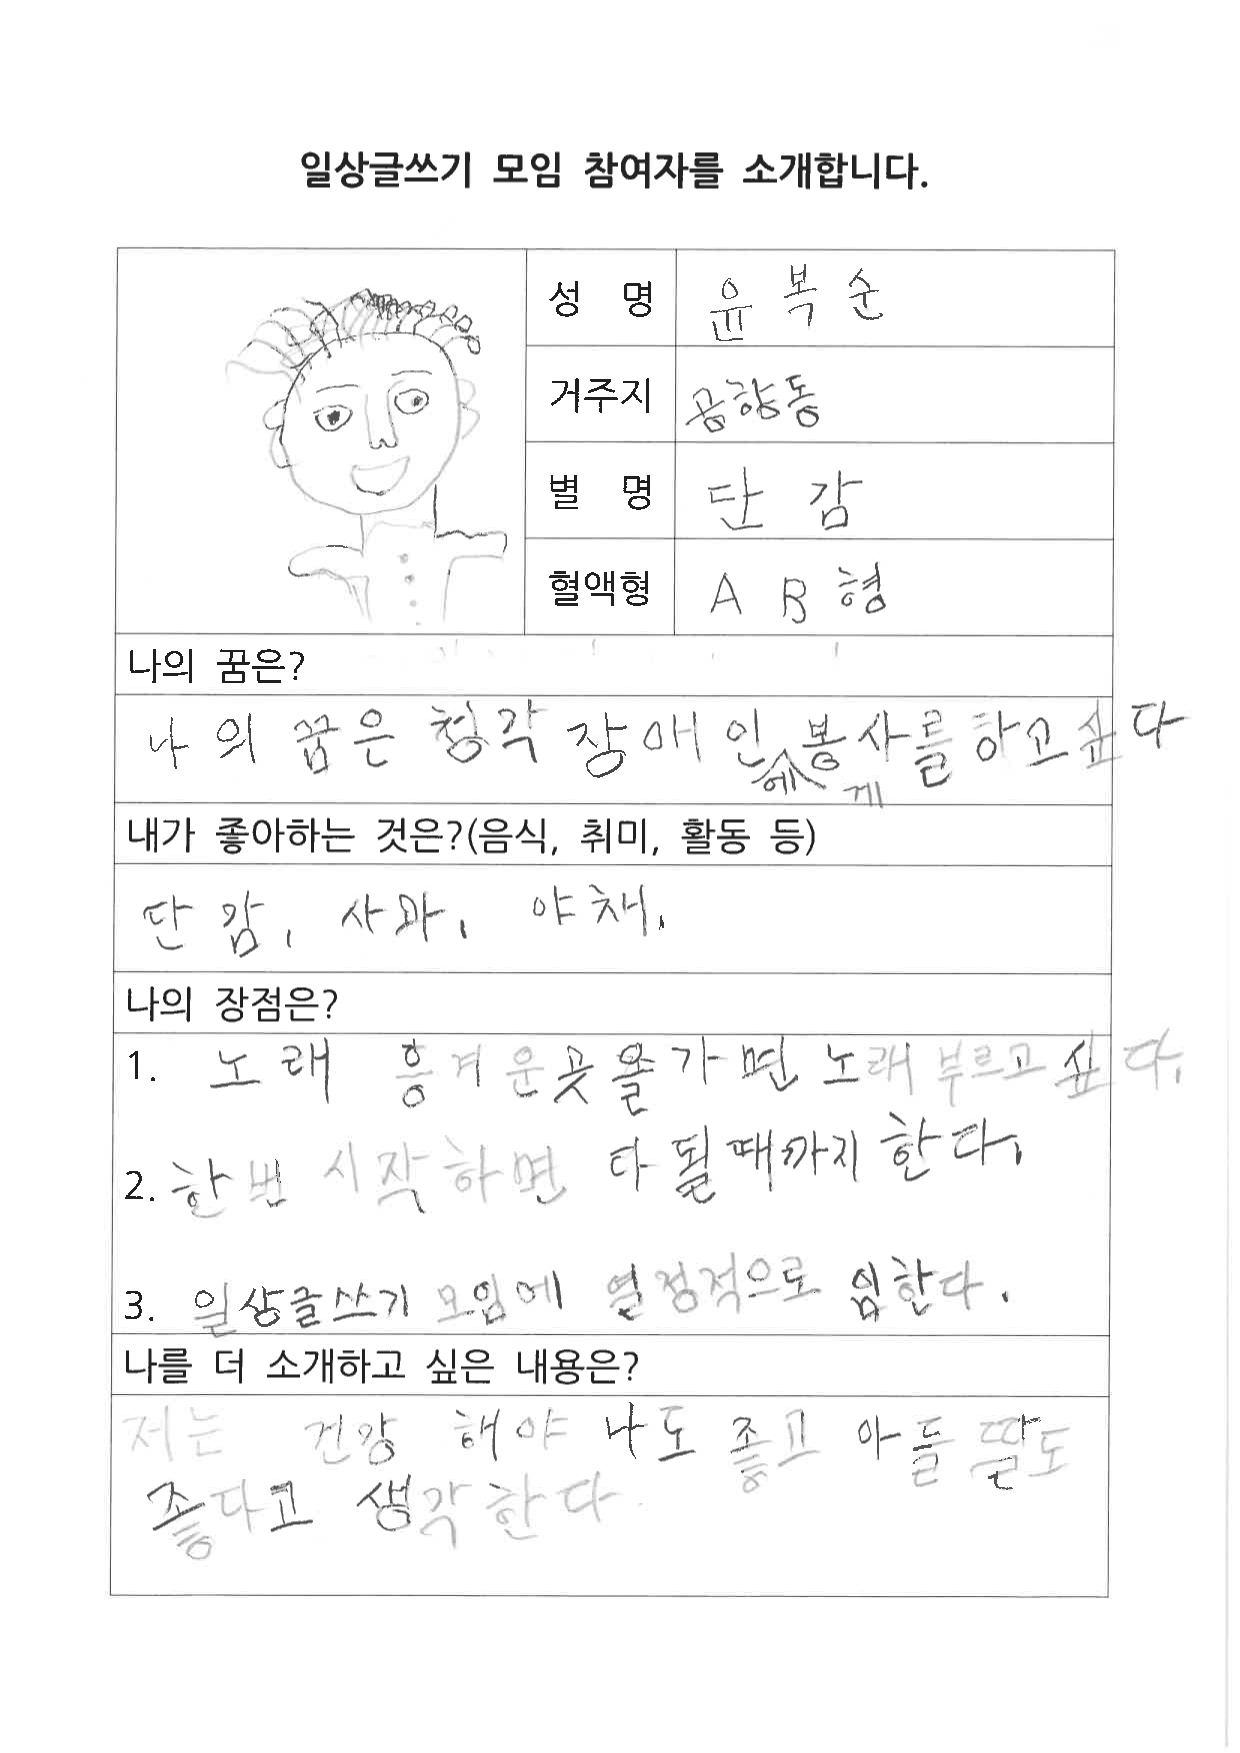 일상글쓰기 모임 참여자를 소개합니다.
성 명 윤복순
거주지 공항동
별 명 단감
혈액형 AB형
나의 꿈은?
나의 꿈은 청각 장애인 봉사를 하고싶다
에 게
내가 좋아하는 것은?(음식, 취미, 활동 등)
단감, 사과, 야채,
나의 장점은?
1. 노래 흥겨운곳을가면 노래 부르고 싶다.
2. 한번 시작하면 다 될때까지 한다.
3. 일상글쓰기 모임에 열정적으로 임한다.
나를 더 소개하고 싶은 내용은?
저는 건강해야 나도 좋고 아들 딸도
좋다고 생각한다.